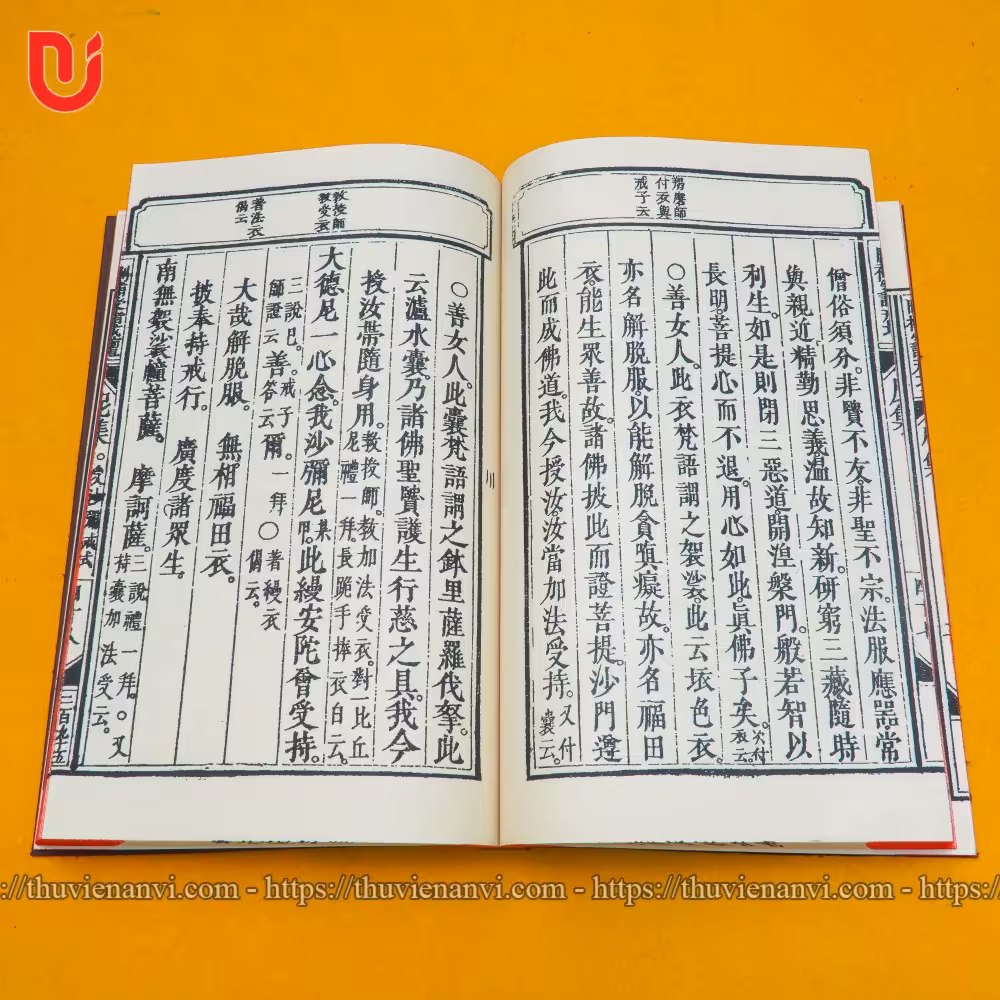 羯磨師
付衣與
戒子云
僧俗須分。非賢不友。非聖不宗。法服應器。常
與親近。精勤思義。溫故知新。研窮三藏。隨時
利生。如是則閉三惡道。開涅槃門。般若智以
長明。菩提心而不退。用心如此。眞佛子矣。次付衣云。
○善女人。此衣梵語謂之袈裟。此云壞色衣。
亦名解脫服。以能解脫貪嗔癡故。亦名福田
衣。能生眾善故。諸佛披此而證菩提。沙門遵
此而成佛道。我今授汝。汝當加法受持。又付囊云。
教授師
教受衣
著法衣
偈云
○善女人。此囊梵語謂之鉢里薩羅伐拏。此
云瀘水囊。乃諸佛聖賢護生行慈之具。我今
授汝帶隨身用。教授師。教加法受衣。對比丘尼禮一拜。長跪手捧衣白云。
大德尼一心念。我沙彌尼某甲。此縵安陀會受持。
三說已。師證云善。戒子答云爾。一拜○著縵衣偈云。
大哉解脫服。 無相福田衣。
披奉持戒行。 廣度諸眾生。
南無袈裟幢菩薩。摩訶薩。三說禮一拜。○又持囊加法受云。
三百九十五
https://thuvienanvi.com - https://thuvienanvi.com - https://thuvienanvi.com - https://